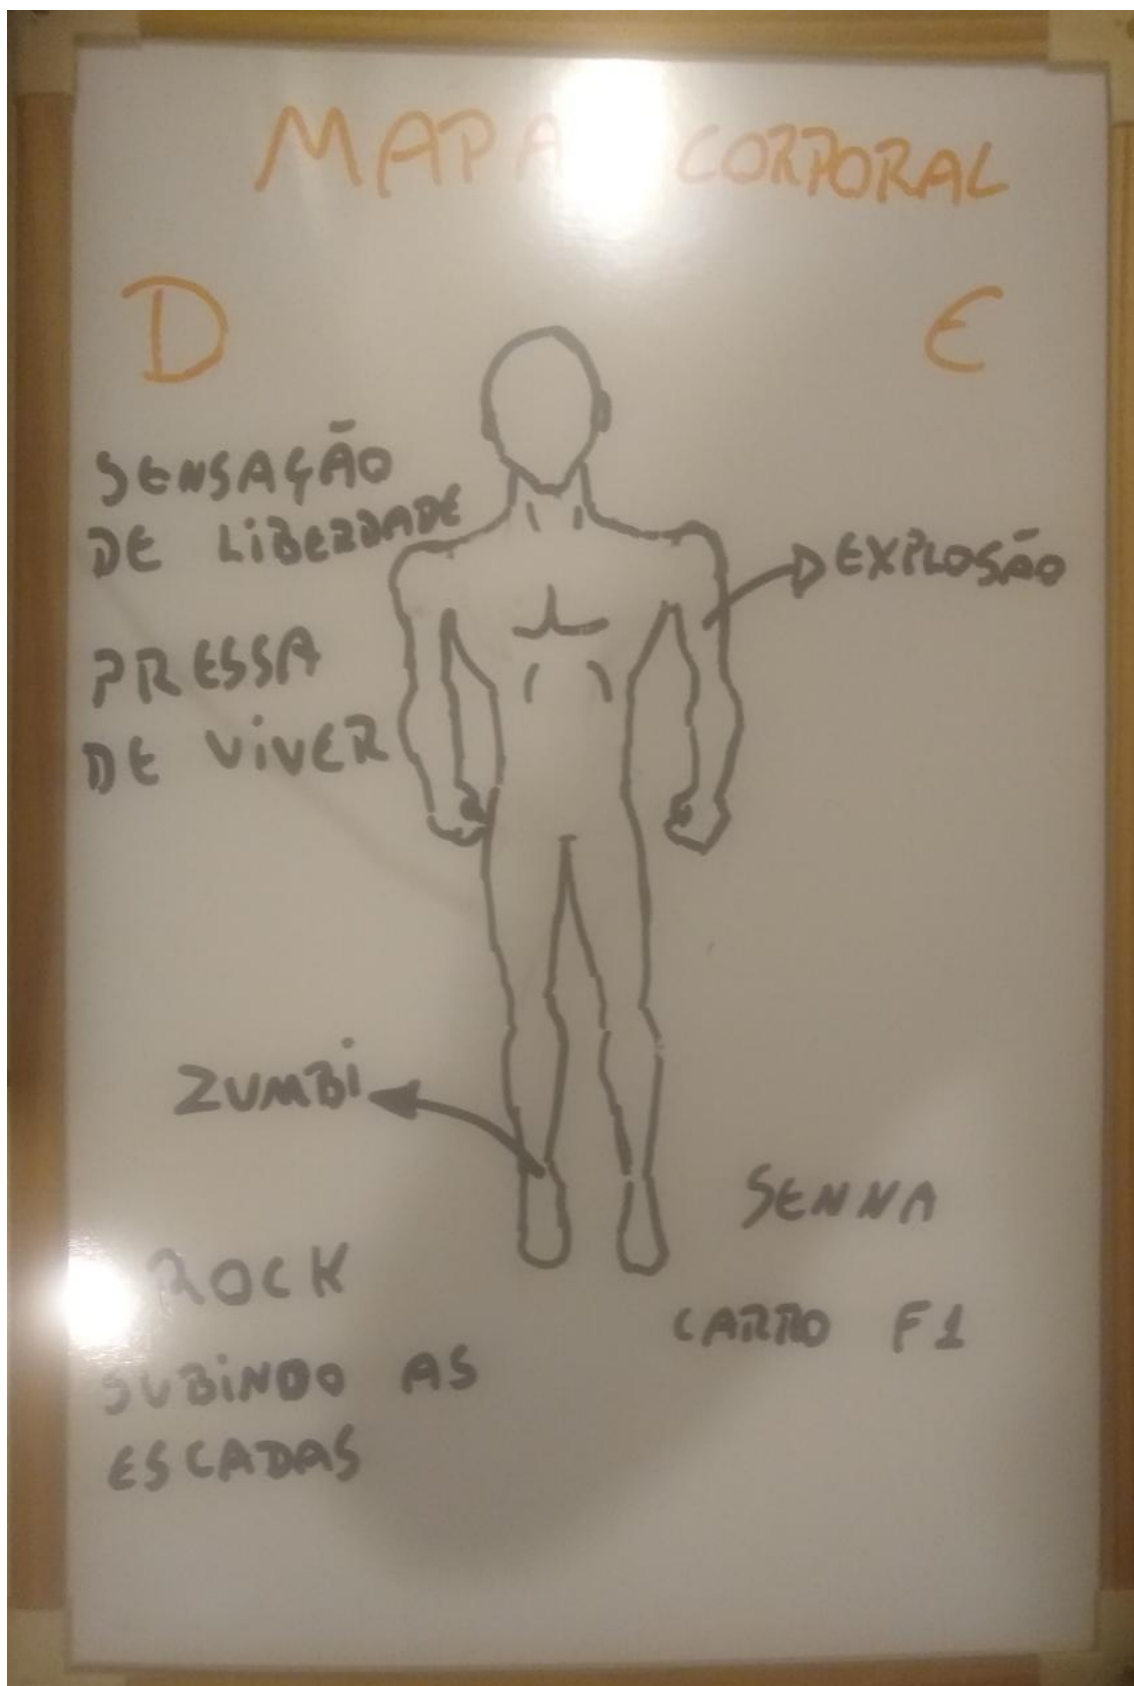 MAPA CORPORAL
D
E
SENSAÇÃO
DE LIBERDADE
EXPLOSÃO
PRESSA
DE VIVER
ZUMBI
SENNA
CARRO F1
ROCK
SUBINDO AS
ESCADAS